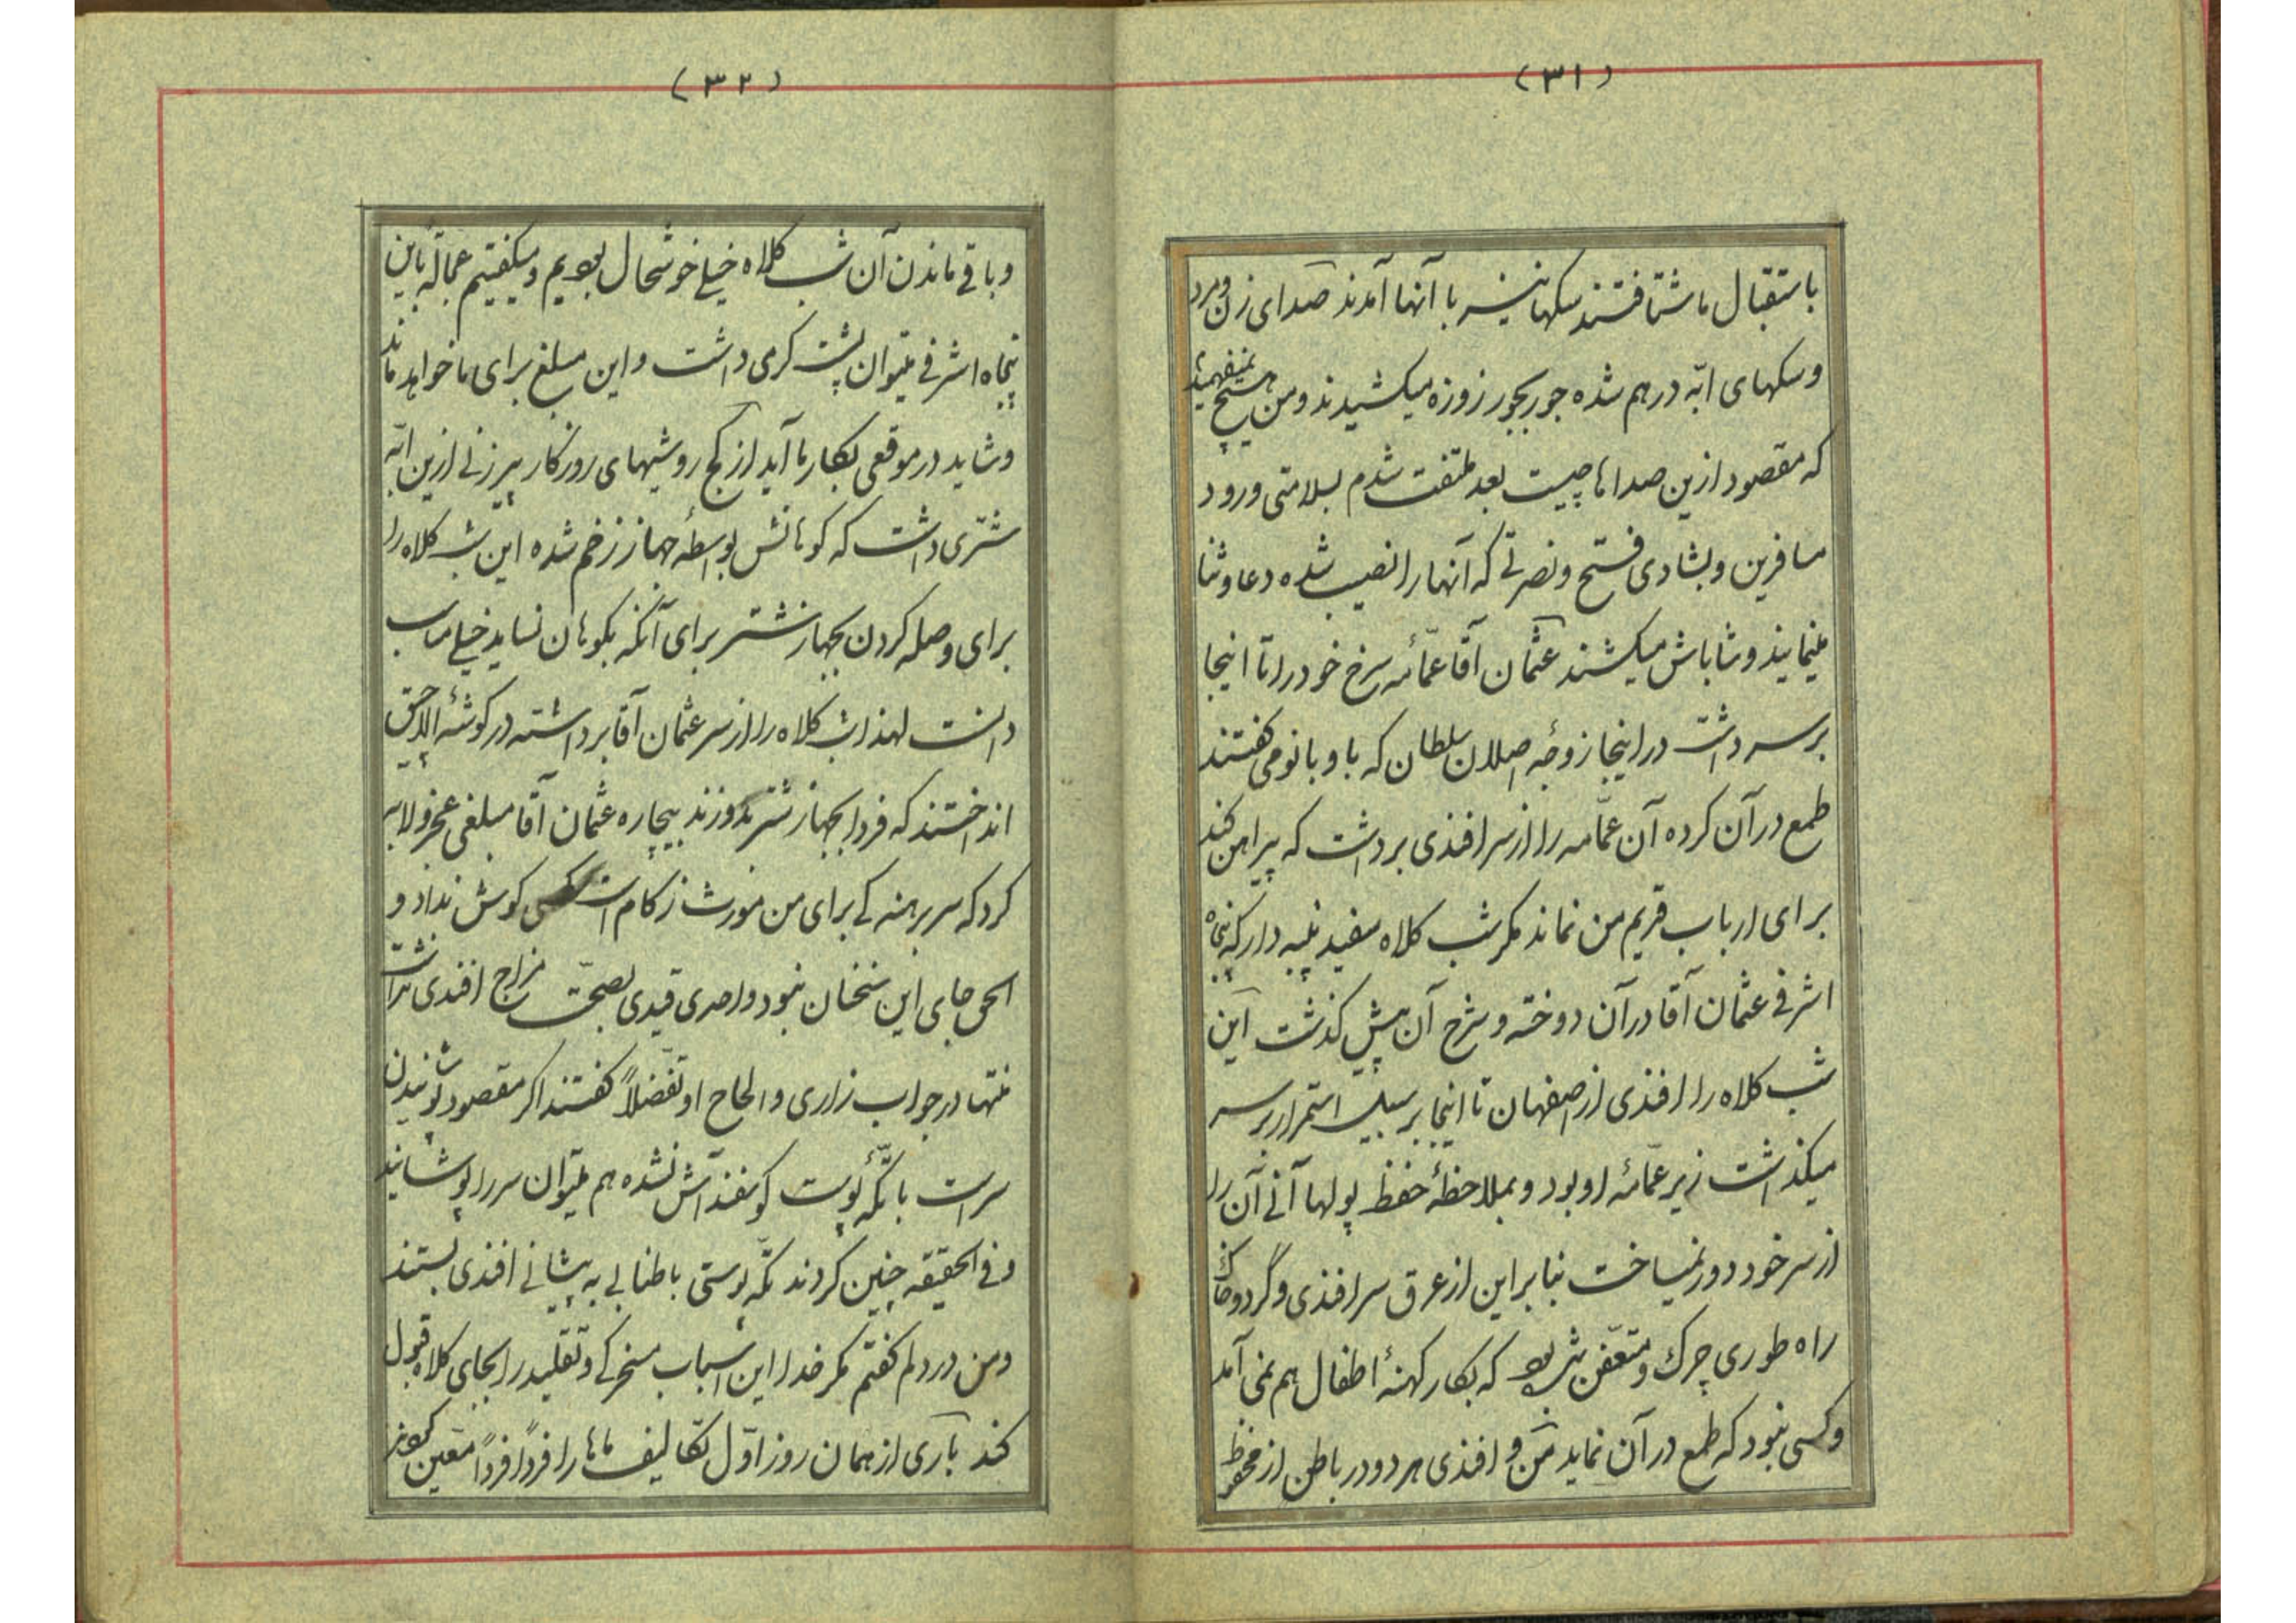 (۳۱)
باستقبال ما شتافتند سکها نیز با آنها آمدند صدای زن و مرد
و سکهای ابّه درهم شده جور بجور زوزه میکشیدند و من هیچ نمیفهمیدم
که مقصود ازین صداها چیست بعد ملتفت شدم بسلامتی ورود
مسافرین و بشادی فتح و نصرتی که آنها را نصیب شده دعا و ثنا
مینمایند و شاباش میکشند عثمان آقا عمّامه سرخ خود را تا اینجا
برسر داشت در اینجا زوجه اصلان سلطان که باو بانو می کفتند
طمع در آن کرده آن عمّامه را از سر افندی برداشت که پیراهن کند
برای ارباب قریم من نماند مکر شب کلاه سفید پنبه دار که پنجاه
اشرفی عثمان آقا در آن دوخته و شرح آن پیش کذشت این
شب کلاه را افندی از اصفهان تا اینجا بر سبیل استمرار برسر
میکذاشت زیر عمّامه او بود و بملاحظهٔ حفظ پولها آنی آن را
از سر خود دور نمیساخت بنابراین از عرق سر افندی و گرد و خاک
راه طوری چرک و متعفّن شده بود که بکار کهنهٔ اطفال هم نمی آمد
و کسی نبود که طمع در آن نماید من و افندی هر دو در باطن از محفوظ
(۳۲)
و باقی ماندن آن شب کلاه خیلی خوشحال بودیم و میکفتیم عجالة باین
پنجاه اشرفی میتوان پشت کرمی داشت و این مبلغ برای ما خواهد ماند
و شاید در موقعی بکار ما آید از کج روشیهای روزکار پیرزنی ازین ابّه
شتری داشت که کوهانش بواسطهٔ جهاز زخم شده این شب کلاه را
برای وصله کردن بجهاز شتر برای آنکه بکوهان نساید خیلی مناسب
دانست لهذا شب کلاه را از سر عثمان آقا برداشته در کوشهٔ الاچیق
انداختند که فردا بجهاز شتر بدوزند بیچاره عثمان آقا مبلغی عجز و لابه
کرد که سر برهنه کی برای من مورث زکام است کسی کوش نداد و
الحق جای این سخنان نبود و احدی قیدی بصحّت مزاج افندی نداشت
منتها در جواب زاری و الحاح او تفضّلاً کفتند اکر مقصود پوشیدن
سر است با تکّه پوست کوسفند آش نشده هم میتوان سر را پوشانید
و فی الحقیقه چنین کردند تکّه پوستی با طنابی به پیشانی افندی بستند
و من در دلم کفتم مکر خدا این اسباب مسخرکی و تقلید را بجای کلاه قبول
کند باری از همان روز اوّل تکالیف ماها را فرداً فرداً معین کردند